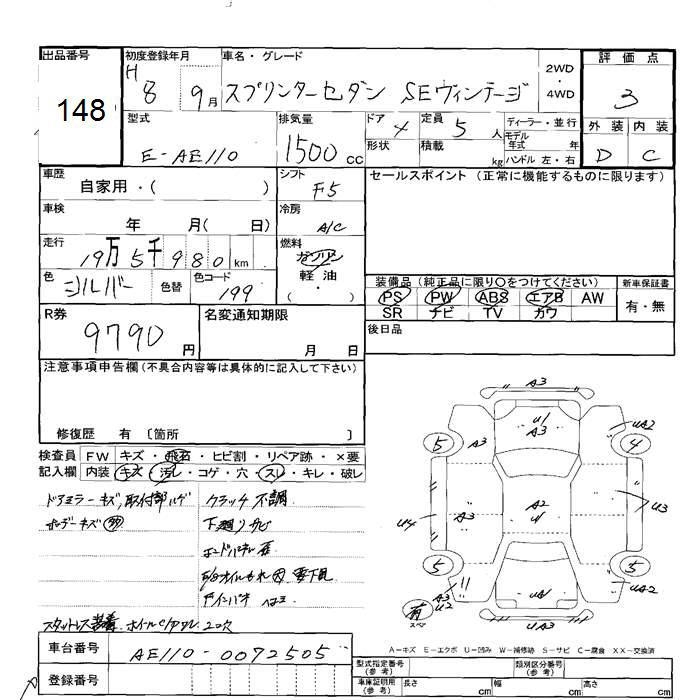 出品番号
148
初度登録年月
H 8 9月
車名・グレード
スプリンターセダン SEヴィンテージ
2WD
・
4WD
評価点
3
型式
E-AE110
排気量
1500 CC
ドア 4
形状
定員 5 人
積載 kg
ディーラー・並行
モデル
年式 年
ハンドル 左・右
外装 内装
D C
車歴
自家用・( )
シフト
F5
セールスポイント (正常に機能するものに限ります)
車検
年 月( 日)
冷房
A/C
走行
19万5千980km
燃料
ガソリン
軽油
( ・ )
色
シルバー
色替
色コード
199
装備品 (純正品に限り○をつけてください)
新車保証書
PS PW ABS エアB AW
SR ナビ TV カワ
有・無
R券
9790 円
名変通知期限
月 日
後日品
注意事項申告欄 (不具合内容等は具体的に記入して下さい)
修復歴 有 〔箇所 〕
検査員
記入欄
FW キズ・飛石・ヒビ割・リペア跡・×要
内装 キズ・汚レ・コゲ・穴・スレ・キレ・破レ
ドアミラーキズ,取付部ハゲ
クラッチ不調
下廻りサビ
スタットレス装着
A3
U1
A3
UA2
5
A3
4
U4
A3
A2
U
U3
5
5
UA2
有
スペア
A3
U2
UA3
A-キズ E-エクボ U-凹み W-補修跡 S-サビ C-腐食 XX-交換済
車台番号
AE110-0072505
登録番号
型式指定番号
(参考)
類別区分番号
(参考)
車庫証明用
(参考)
長さ cm
幅 cm
高さ cm